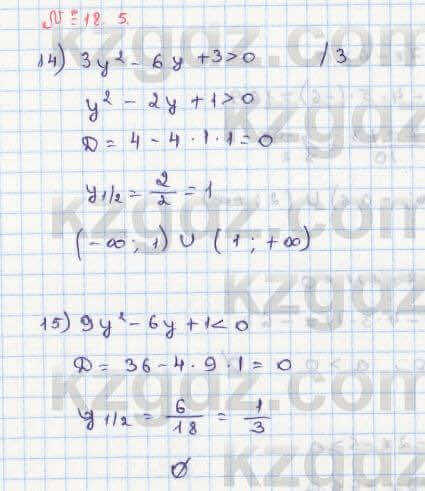 № 18. 5.
14) 3y² - 6y + 3 > 0 / 3
y² - 2y + 1 > 0
D = 4 - 4 · 1 · 1 = 0
y 1/2 = 2/2 = 1
(-∞; 1) ∪ (1; +∞)
15) 9y² - 6y + 1 < 0
D = 36 - 4 · 9 · 1 = 0
y 1/2 = 6/18 = 1/3
∅
kzgdz.com